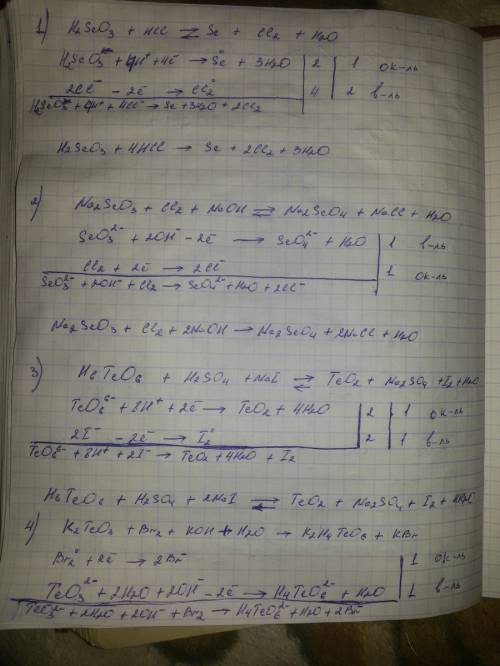 1) H2SeO3 + HCl ⇄ Se + Cl2 + H2O
H2SeO3 + 4H+ + 4ē → Se0 + 3H2O | 2 | 1 ок-ль
2Cl- - 2ē → Cl20 | 4 | 2 в-ль
H2SeO3 + 4H+ + 4Cl- → Se + 3H2O + 2Cl2
H2SeO3 + 4HCl → Se + 2Cl2 + 3H2O
2) Na2SeO3 + Cl2 + NaOH ⇄ Na2SeO4 + NaCl + H2O
SeO3 2- + 2OH- - 2ē → SeO4 2- + H2O | 1 в-ль
Cl2 + 2ē → 2Cl- | 1 ок-ль
SeO3 2- + 2OH- + Cl2 → SeO4 2- + H2O + 2Cl-
Na2SeO3 + Cl2 + 2NaOH → Na2SeO4 + 2NaCl + H2O
3) H6TeO6 + H2SO4 + NaI ⇄ TeO2 + Na2SO4 + I2 + H2O
TeO6 6- + 8H+ + 2ē → TeO2 + 4H2O | 2 | 1 ок-ль
2I- - 2ē → I20 | 2 | 1 в-ль
TeO6 6- + 8H+ + 2I- → TeO2 + 4H2O + I2
H6TeO6 + H2SO4 + 2NaI ⇄ TeO2 + Na2SO4 + I2 +
4) K2TeO3 + Br2 + KOH + H2O → K2H4TeO6 + KBr
Br20 + 2ē → 2Br- | 1 ок-ль
TeO3 2- + 2H2O + 2OH- - 2ē → H4TeO6 2- + H2O | 1 в-ль
TeO3 2- + 2H2O + 2OH- + Br2 → H4TeO6 2- + H2O + 2Br-